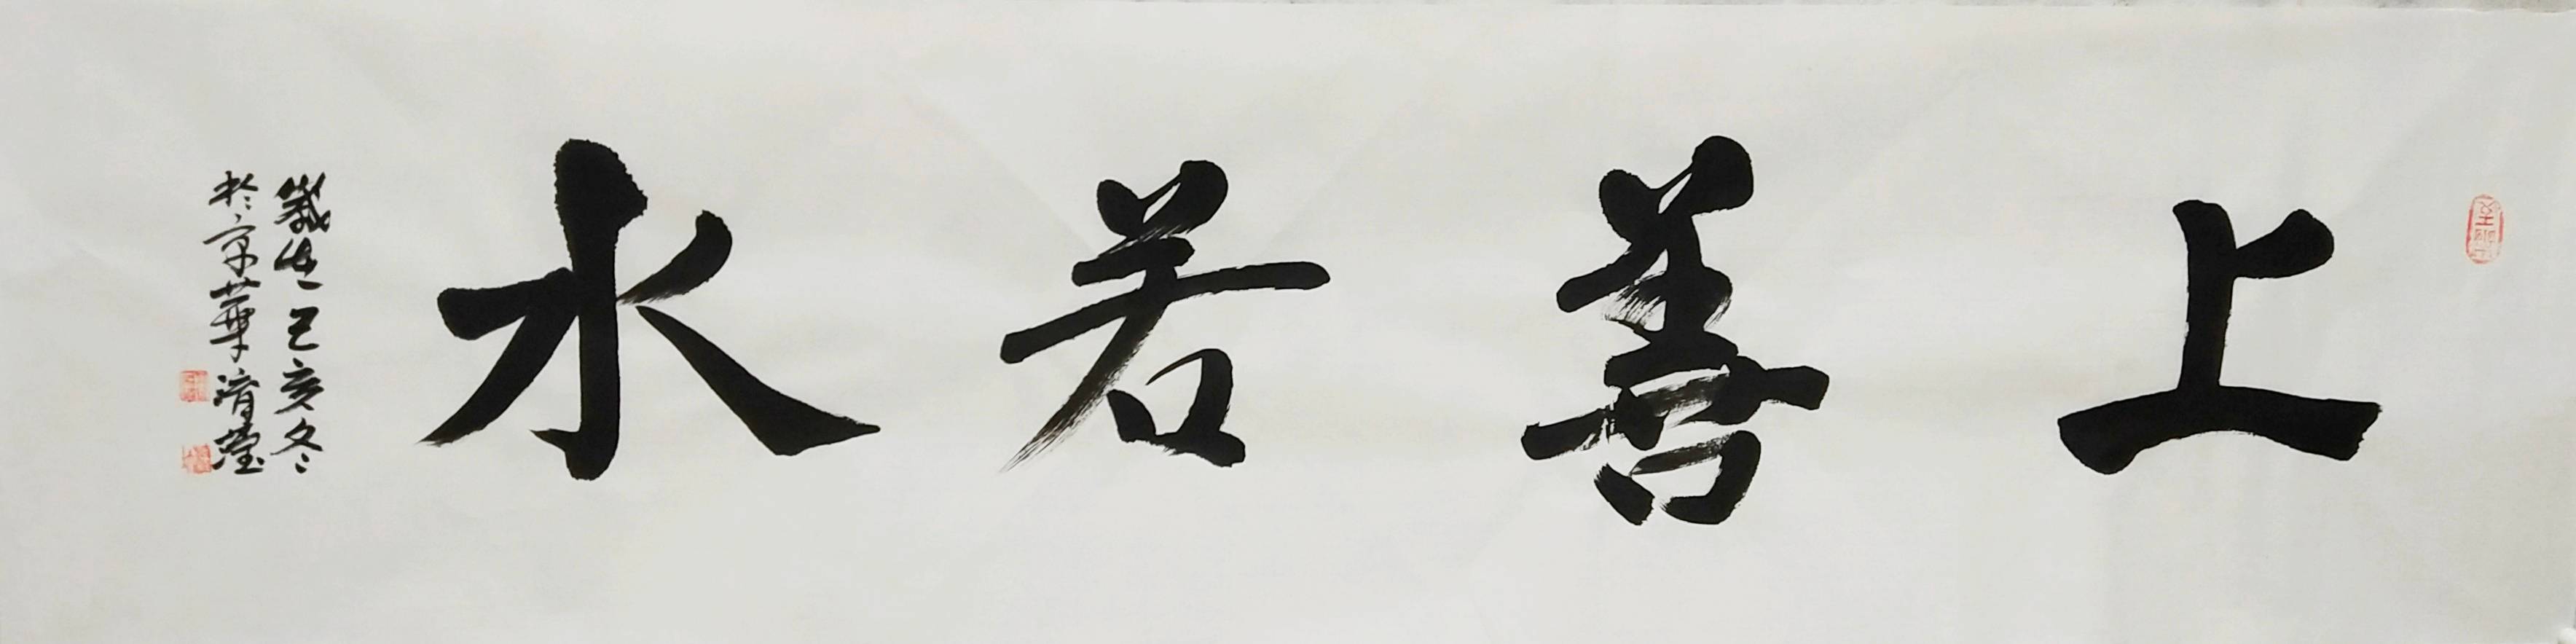 上善若水
歲在己亥冬
於京華清瑩